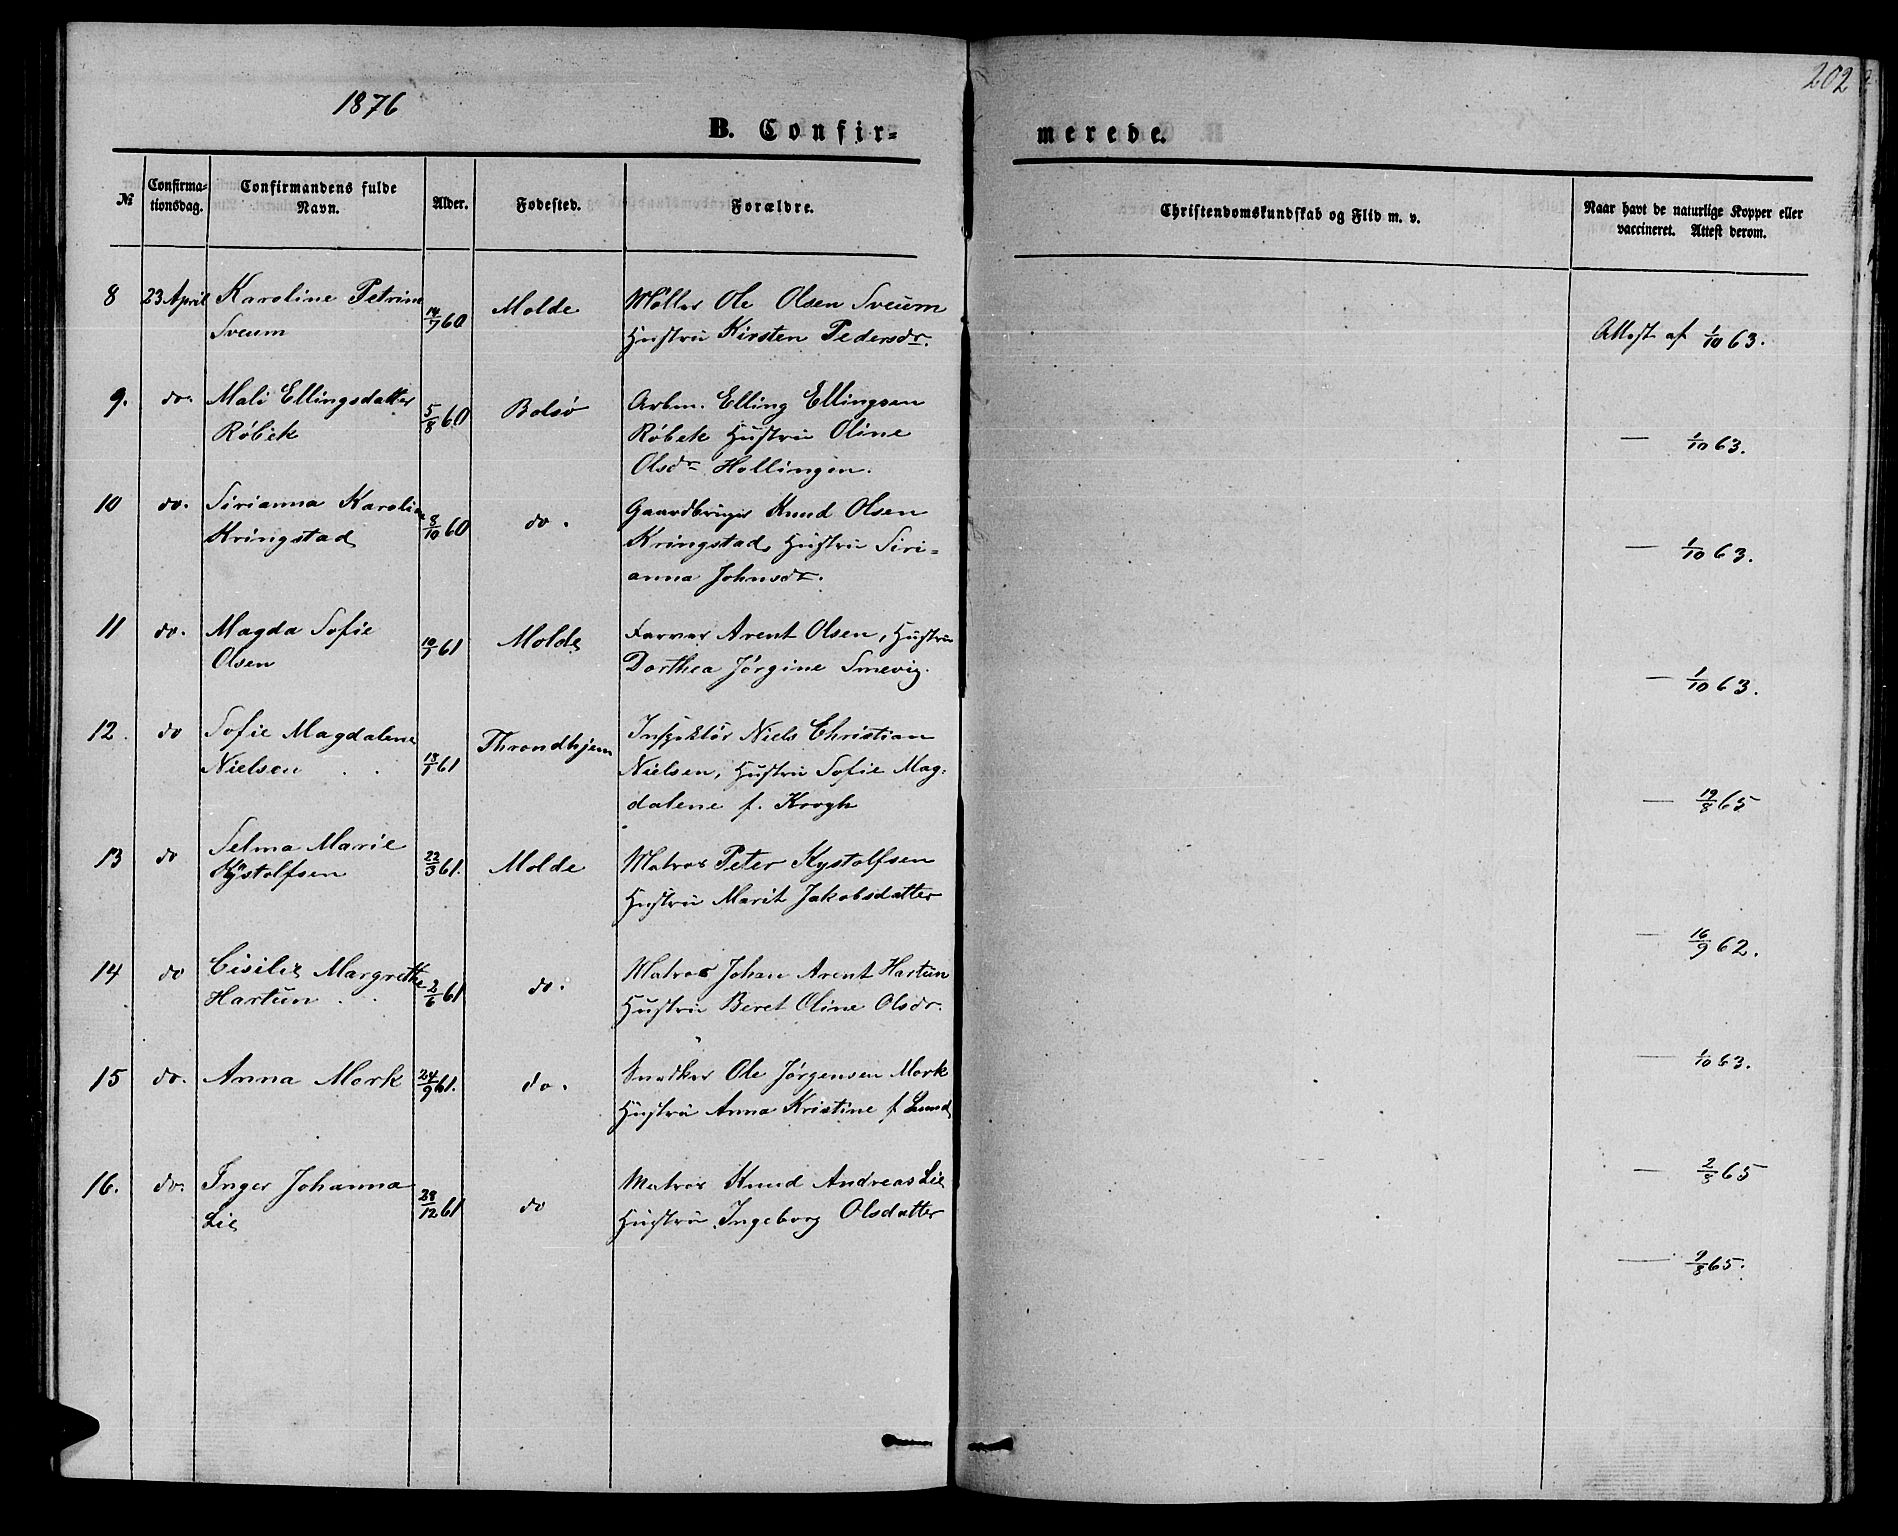 1876
202
B. Confir=
merede.
№
Confirma-
tionsdag.
Confirmandens fulde
Navn.
Alder.
Fodested.
Forældre.
Christendomskundskab og Flid m. v.
Naar havt de naturlige Kopper eller
vaccineret. Attest derom.
8 23 April Karoline Petrine
Sveum
14/7 60 Molde
Møller Ole Olsen Sveum
Hustru Kirsten Pedersdr.
Attest af 1/10 63.
9. do. Mali Ellingsdatter
Røbek
5/8 60 Bolsø
Arbm. Elling Ellingsen
Røbek Hustru Oline
Olsdr Hollingen.
— 1/10 63.
10 do. Sirianna Karoline
Kringstad
8/10 60 do.
Gaardbruger Knud Olsen
Kringstad, Hustru Siri=
anna Johnsdr.
— 1/10 63.
11 do. Magda Sofie
Olsen
10/1 61 Molde
Farver Arent Olsen, Hustru
Dorthea Jørgine Smevig.
— 1/10 63.
12. do Sofie Magdalene
Nielsen
18/1 61 Throndhjem
Inspektør Niels Christian
Nielsen, Hustru Sofie Mag-
dalene f. Krogh
— 19/8 65
13 do Selma Marie
Kystolfsen
22/3 61. Molde
Matros Peter Kystolfsen
Hustru Marit Jakobsdatter
— 16/9 62.
14 do Cisilie Margrethe
Hartun
2/6 61 do.
Matros Johan Arent Hartun
Hustru Beret Oline Olsdr.
— 1/10 63.
15 do. Anna Mork
24/9 61. do.
Snedker Ole Jørgensen Mork
Hustru Anna Kristine f Lund
— 2/8 65
16. do. Inger Johanna
Lie
28/12 61 do
Matros Knud Andreas Lie
Hustru Ingeborg Olsdatter
— 9/8 65.